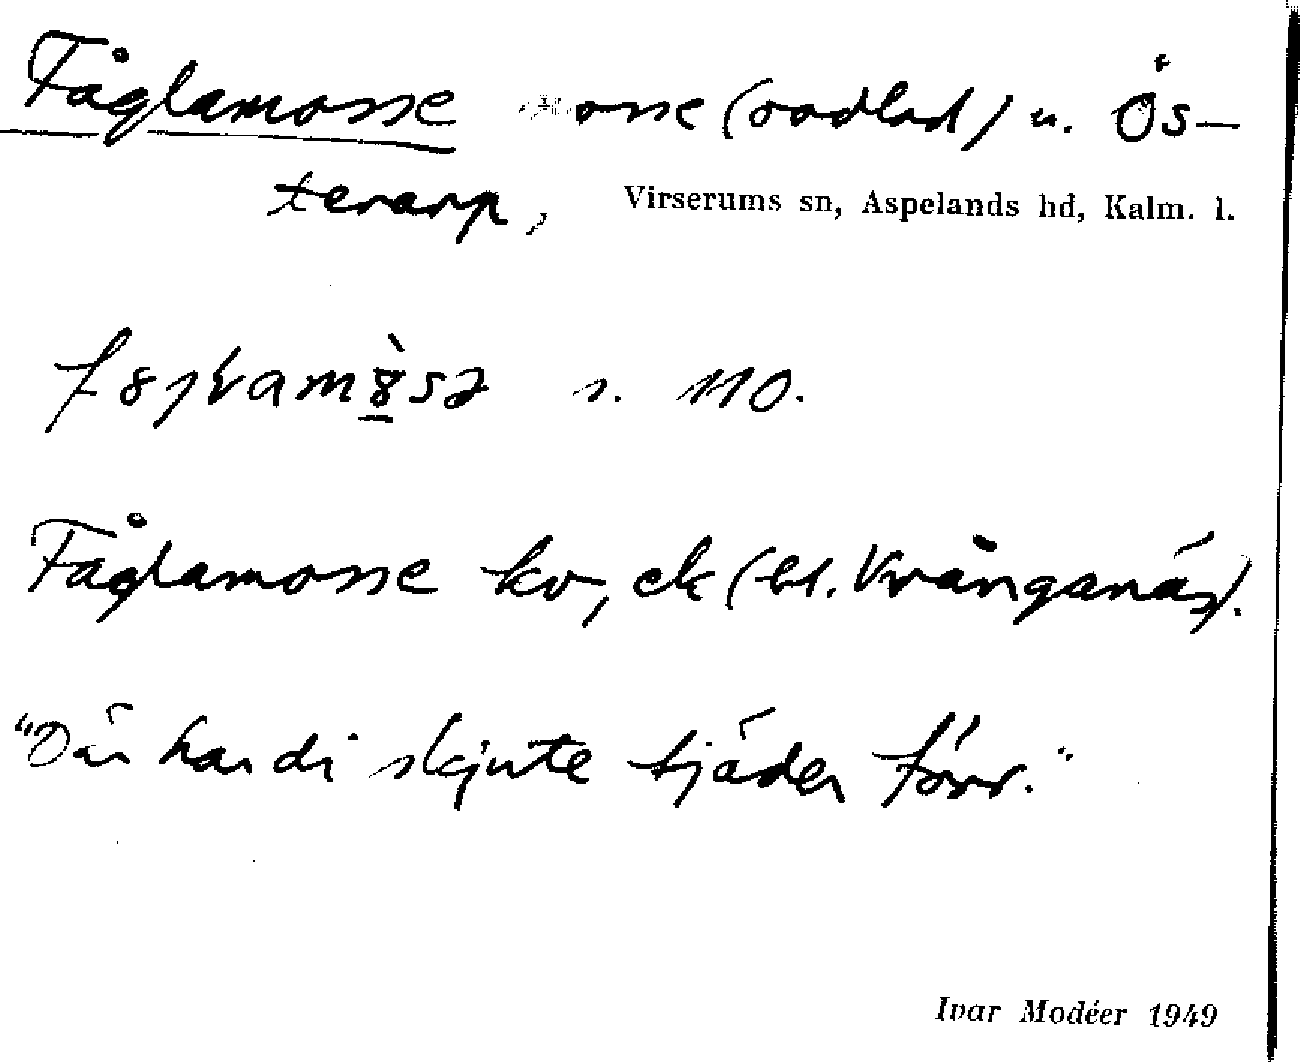 Fåglamosse mosse (sodlad) u. Ös-
terarp, Virserums sn, Aspelands hd, Kalm. l.
s. 110.
Fåglamosse kv, ek (bl. Kvånganäs).
"Där har di skjute tjäder förr."
Ivar Modéer 1949